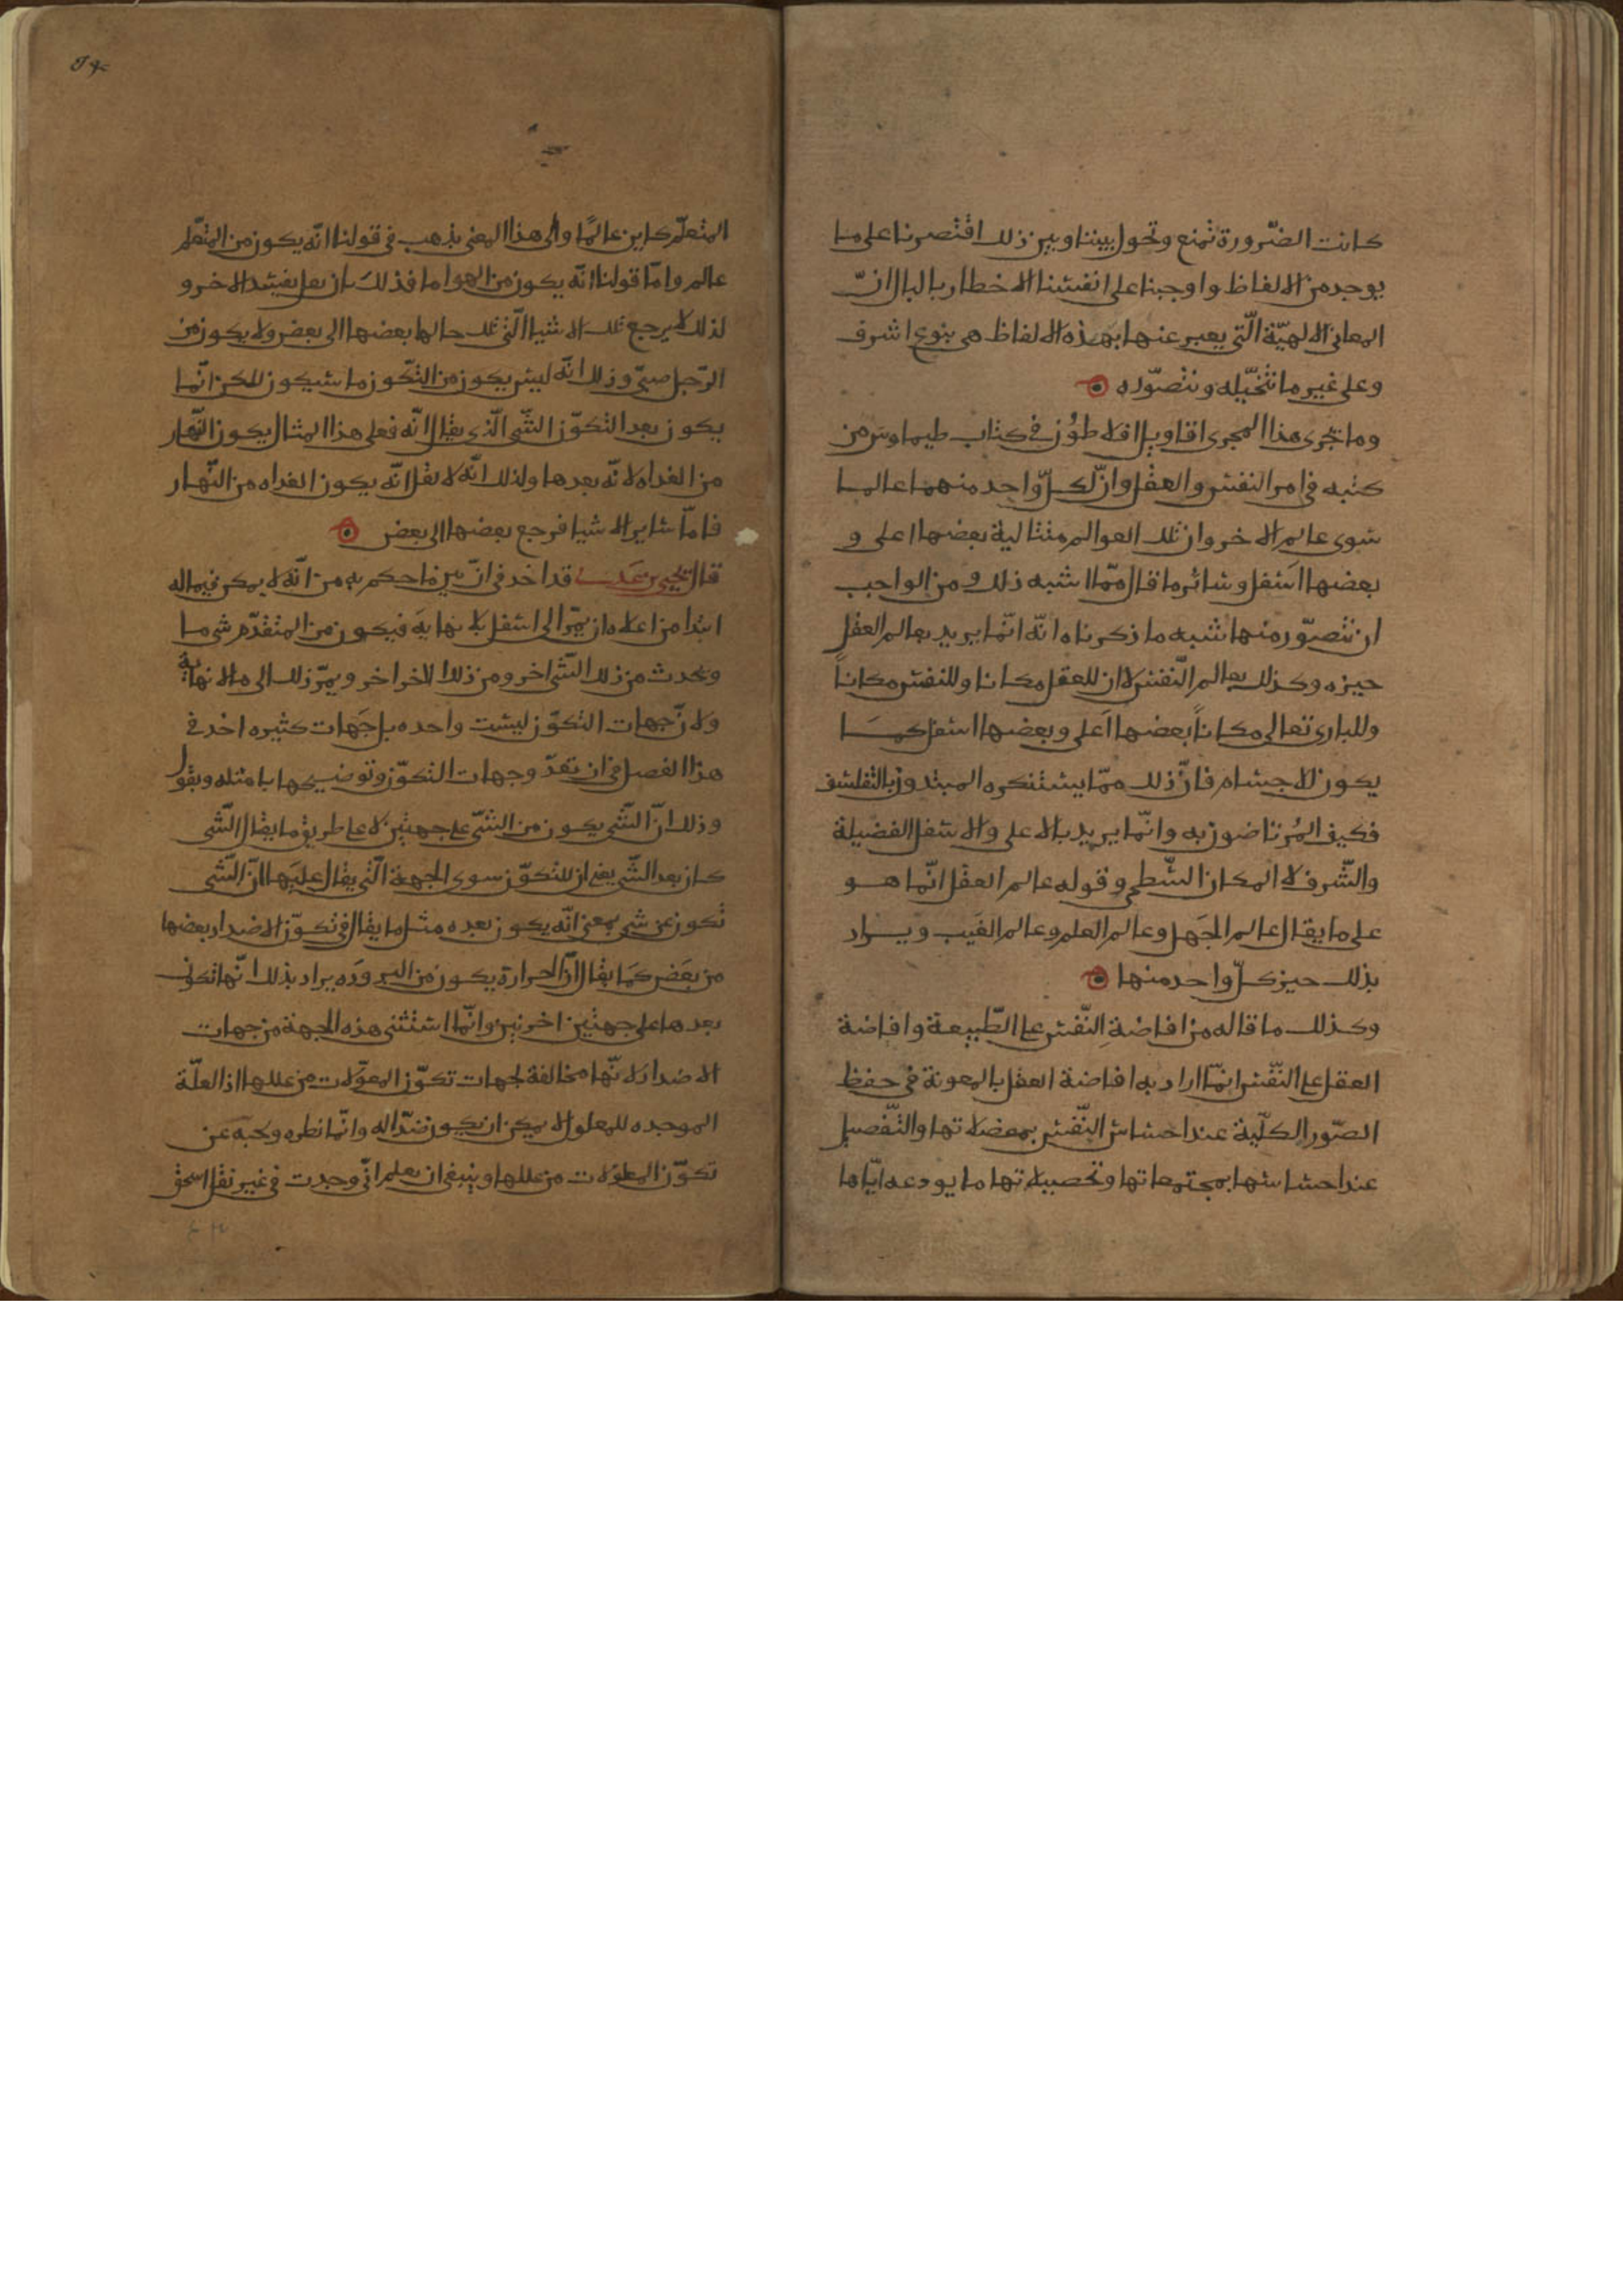 كانت الضّرورة تمنع وتحول بيننا وبين ذلك اقتصرنا على ما
يوجد من الالفاظ واوجبنا على انفسنا الاخطار بالبال انّ
المعانى الالهيّة الّتى يعبر عنها بهذه الالفاظ هى بنوع اشرف
وعلى غير ما نتخيّله ونتصوّره
وما تجرى هذا المجرى اقاويل افلاطون في كتاب طيماوس من
كتبه في امر النفس والعقل وانّ لكلّ واحد منهما عالما
سوى عالم الاخر وان تلك العوالم متتالية بعضها اعلى و
بعضها اسفل وسائر ما قال ممّا اشبه ذلك ومن الواجب
ان نتصوّر منها شبه ما ذكرناه انّه انّما يريد بعالم العقل
حيزه وكذلك بعالم النّفس لا ان للعقل مكانا وللنفس مكاناً
وللبارى تعالى مكاناً بعضها اعلى وبعضها اسفل كما
يكون للاجسام فانّ ذلك ممّا يستنكره المبتدون بالتفلسف
فكيف المُرتاضون به وانّما يريد بالاعلى والاسفل الفضيلة
والشّرف لا المكان السّطحى وقوله عالم العقل انّما هو
على ما يقال عالم الجهل وعالم العلم وعالم الغيب ويراد
بذلك حيز كلّ واحد منها
وكذلك ما قاله من افاضة النّفس على الطّبيعة وافاضة
العقل على النّفس انّما اراد به افاضة العقل بالمعونة في حفظ
الصّور الكلّية عند احساس النّفس بمعضلاتها والتّفصيل
عند احساسها بمجتمعاتها وتحصيلاتها ما يودعه ايّاها
المتعلّم كاين عالمًا والى هذا المعنى يذهب في قولنا انّه يكون من المتعلّم
عالم وامّا قولنا انّه يكون من الهوا ما فذلك بان يفسد الاخر و
لذلك يرجع تلك الاشيا الّتى تلك حالها بعضها الى بعض ولا يكون من
الرّجل صبىّ وذلك انّه ليس يكون من التّكوّن ما سيكون لكن انّما
يكون بعد التكوّن الشّى الّذى يقال انّه فعلى هذا المثال يكون النّهار
من الغداه لانّه بعدها ولذلك انّه لا يقال انّه يكون الغداه من النّهار
فامّا ساير الاشيا فرجع بعضها الى بعض
قال يحيى بن عدى قد اخذ في ان يبين ما حكم به من انّه لا يمكن فيما له
ابتدا من اعلاه ان يمرّ الى اسفل بلا نهاية فيكون من المتقدّم شى ما
ويحدث من ذلك الشّى اخر ومن ذلك الاخر اخر ويمرّ ذلك الى ما لا نهاية
ولانّ جهات التكوّن ليست واحده بل جهات كثيره اخذ في
هذا الفصل في ان يعدّ وجهات التكوّن وتوضيحها بامثله ويقول
وذلك انّ الشّى يكون من الشّى على جهتين لا على طريق ما يقال الشّى
كان بعد الشّى يعنى ان للتكوّن سوى الجهة الّتى يقال عليها انّ الشّى
تكون عن شى بمعنى انّه يكون بعده مثل ما يقال في تكوّن الاضداد بعضها
من بعض كما يقال انّ الحرارة يكون من البروده يراد بذلك انّها تكون
بعدها على جهتين اخرتين وانّما استثنى هذه الجهة من جهات
الاضداد لانّها مخالفة لجهات تكوّن المعلولات من عللها اذ العلّة
الموجده للمعلول لا يمكن ان يكون ضدّا له وانّما نظره وبحثه عن
تكوّن المعلولات من عللها وينبغى ان يعلم انّى وجدت في غير نقل اسحق